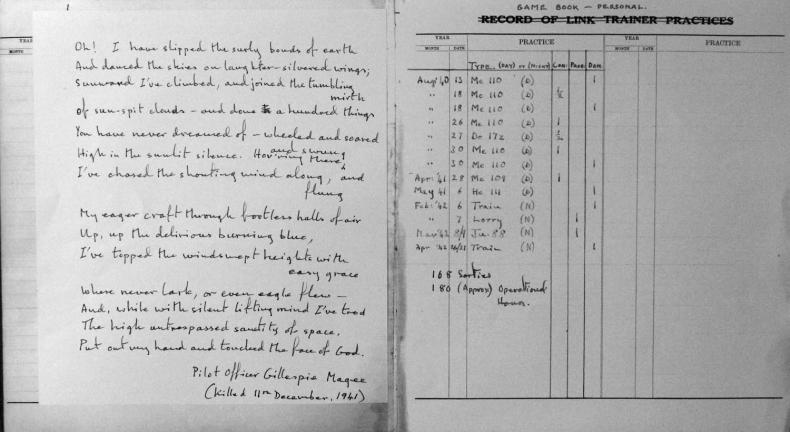 1
Oh! I have slipped the surly bonds of earth
And danced the skies on laughter-silvered wings;
Sunward I've climbed, and joined the tumbling
mirth
of sun-spit clouds - and done a hundred things
You have never dreamed of - wheeled and soared
and swung
High in the sunlit silence. Hov'ring there
I've chased the shouting wind along, and
flung
My eager craft through footless halls of air
Up, up the delirious burning blue,
I've topped the windswept heights with
easy grace
Where never lark, or even eagle flew -
And, while with silent lifting mind I've trod
The high untrespassed sanctity of space.
Put out my hand and touched the face of God.
Pilot Officer Gillespie Magee
(Killed 11th December, 1941)
YEAR
MONTH
GAME BOOK - PERSONAL.
RECORD OF LINK TRAINER PRACTICES
YEAR PRACTICE YEAR PRACTICE
MONTH DATE MONTH DATE
TYPE. (DAY) or (NIGHT) Con: Prob: Dam:
Aug '40 13 Me 110 (D) 1
" 18 Me 110 (D) ½
" 18 Me 110 (D) 1
" 26 Me 110 (D) 1
" 27 Do 17z (D) ½
" 30 Me 110 (D) 1
" 30 Me 110 (D) 1
April '41 28 Me 109 (D) 1
May 41 6 He 111 (D) 1
Feb: '42 6 Train (N) 1
" 7 Lorry (N) 1
Mar '42 8/9 Ju. 88 (N) 1
Apr '42 Train (N) 1
168 Sorties
180 (Approx) Operational
Hours.